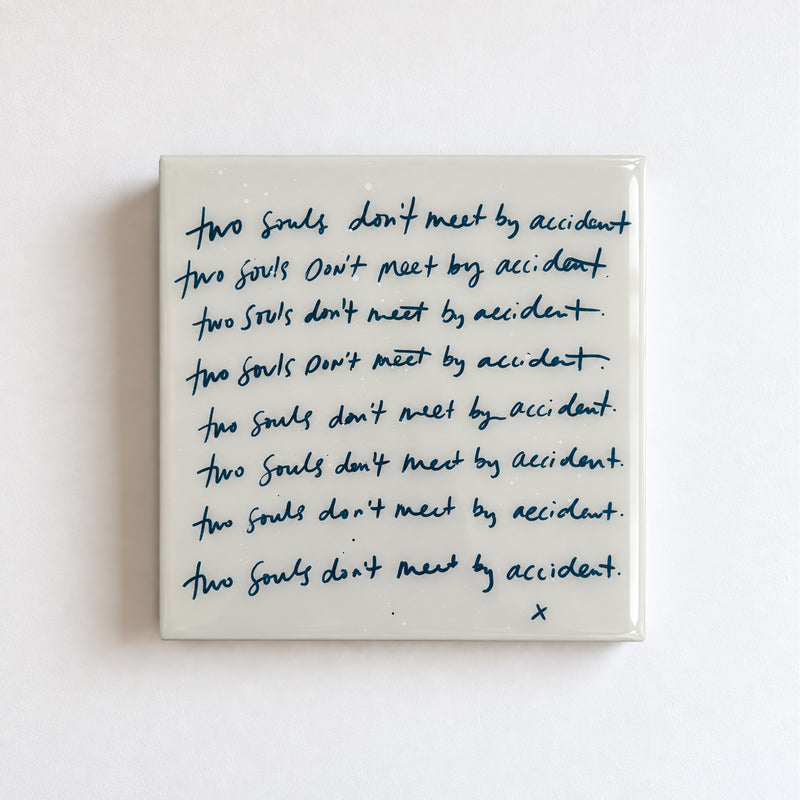 two souls don't meet by accident
two souls Don't meet by accident.
two souls don't meet by accident.
two souls Don't meet by accident.
two souls don't meet by accident.
two souls don't meet by accident.
two souls don't meet by accident.
two souls don't meet by accident.
x